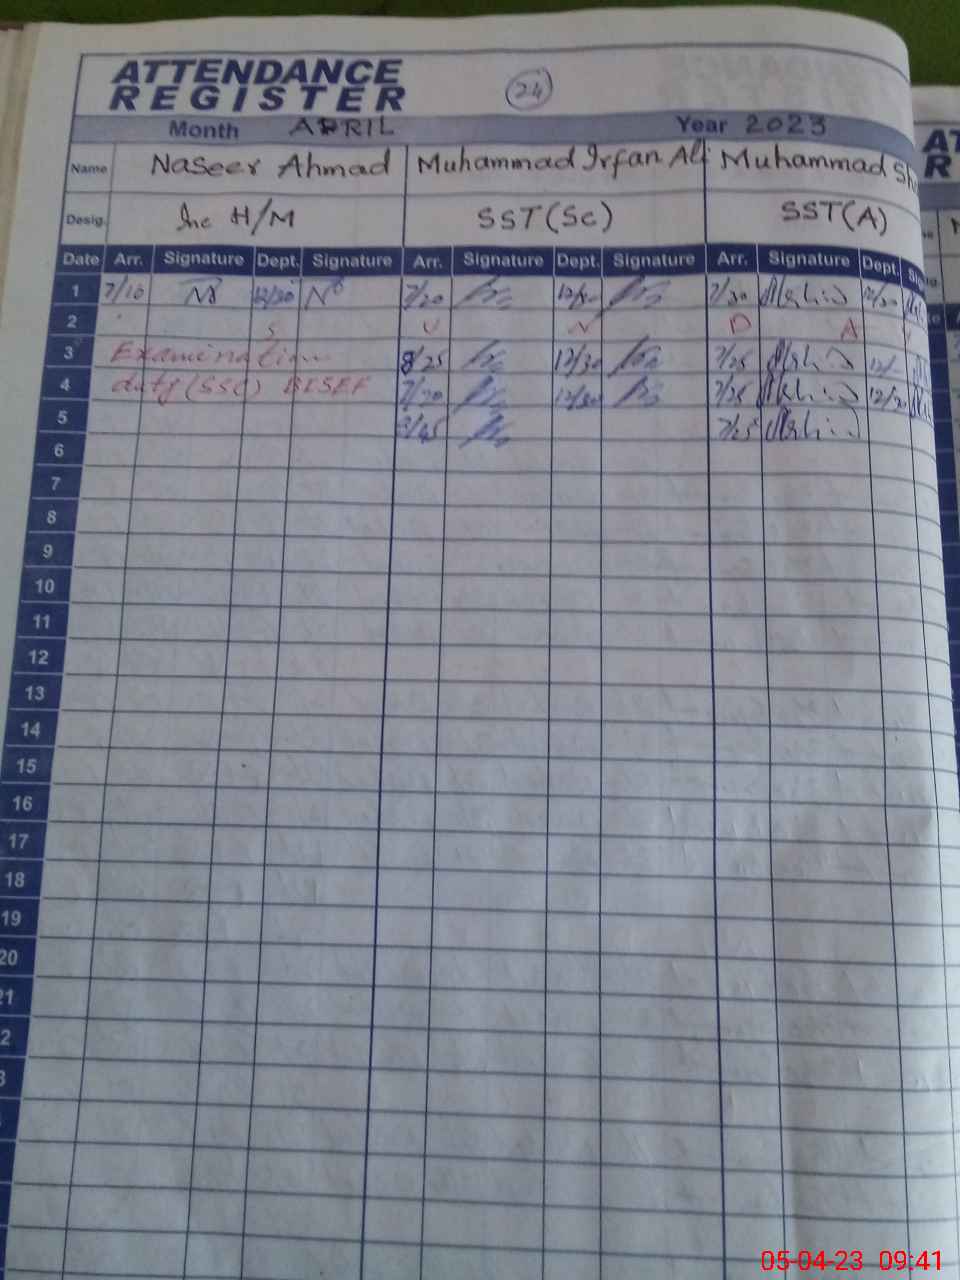 ATTENDANCE
REGISTER
24
Month APRIL Year 2023
Name Naseer Ahmad Muhammad Irfan Ali Muhammad
Desig. Inc H/M SST(Sc) SST(A)
Date Arr. Signature Dept. Signature Arr. Signature Dept. Signature Arr. Signature Dept.
1 7/10 12/30 7/20 12/30 7/30 12/30
2 S U N D A Y
3 Examination 8/25 12/30 7/25 12/
4 duty (SSC) BISEF 7/20 12/30 7/25 12/30
5 7/25
6
7
8
9
10
11
12
13
14
15
16
17
18
19
20
21
2
3
05-04-23 09:41